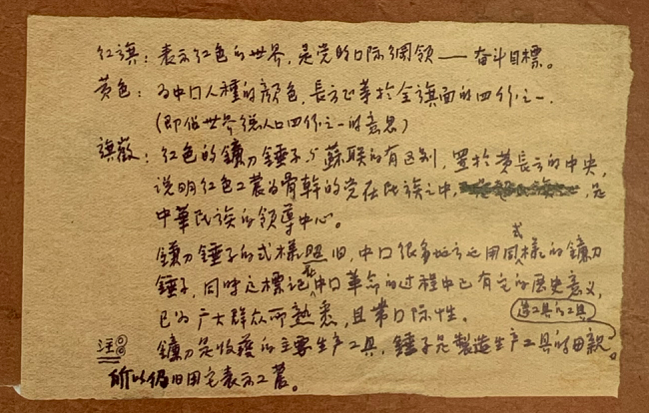 红旗：表示红色的世界，是党的口际纲领——奋斗目標。
黄色：为中口人種的顏色，長方形等於全旗面的四份之一.
(即佔世界總人口四份之一的意思)
旗徽：红色的鐮刀錘子与蘇联的有区别，置於黄長方的中央，
说明红色工農为骨幹的党在民族之中，是
中華民族的领導中心。
鐮刀錘子的式樣照旧，中口很多地方是用同樣式的鐮刀
錘子，同时这標记在中口革命的过程中已有它的歷史意义，
已为广大群众所熟悉，且带口际性。
造工具的工具
注：鐮刀是收穫的主要生产工具，錘子是製造生产工具的母親
所以仍旧用它表示工農。